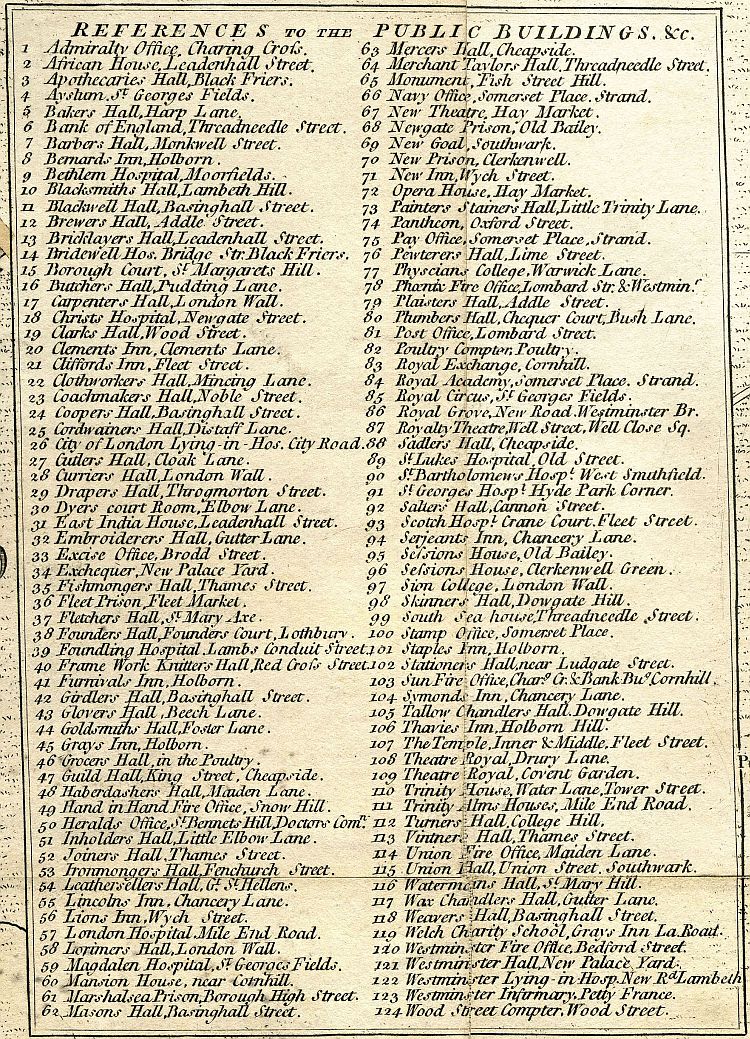 REFERENCES TO THE PUBLIC BUILDINGS. &c.
1 Admiralty Office, Charing Croſs.
2 African House, Leadenhall Street.
3 Apothecaries Hall, Black Friers.
4 Ayslum, St. Georges Fields.
5 Bakers Hall, Harp Lane.
6 Bank of England, Threadneedle Street.
7 Barbers Hall, Monkwell Street.
8 Bernards Inn, Holborn.
9 Bethlem Hospital, Moorfields.
10 Blacksmiths Hall, Lambeth Hill.
11 Blackwell Hall, Basinghall Street.
12 Brewers Hall, Addle Street.
13 Bricklayers Hall, Leadenhall Street.
14 Bridewell Hos. Bridge Str. Black Friers.
15 Borough Court, St. Margarets Hill.
16 Butchers Hall, Pudding Lane.
17 Carpenters Hall, London Wall.
18 Christs Hospital, Newgate Street.
19 Clarks Hall, Wood Street.
20 Clements Inn, Clements Lane.
21 Cliffords Inn, Fleet Street.
22 Clothworkers Hall, Mincing Lane.
23 Coachmakers Hall, Noble Street.
24 Coopers Hall, Basinghall Street.
25 Cordwainers Hall, Distaff Lane.
26 City of London Lying-in-Hos. City Road.
27 Cutlers Hall, Cloak Lane.
28 Curriers Hall, London Wall.
29 Drapers Hall, Throgmorton Street.
30 Dyers court Room, Elbow Lane.
31 East India House, Leadenhall Street.
32 Embroiderers Hall, Gutter Lane.
33 Excise Office, Brodd Street.
34 Exchequer, New Palace Yard.
35 Fishmongers Hall, Thames Street.
36 Fleet Prison, Fleet Market.
37 Fletchers Hall, St. Mary Axe.
38 Founders Hall, Founders Court, Lothbury.
39 Foundling Hospital, Lambs Conduit Street.
40 Frame Work Knitters Hall, Red Croſs Street.
41 Furnivals Inn, Holborn.
42 Girdlers Hall, Basinghall Street.
43 Glovers Hall, Beech Lane.
44 Goldsmiths Hall, Foster Lane.
45 Grays Inn, Holborn.
46 Grocers Hall, in the Poultry.
47 Guild Hall, King Street, Cheapside.
48 Haberdashers Hall, Maiden Lane.
49 Hand in Hand Fire Office, Snow Hill.
50 Heralds Office, St. Bennets Hill, Doctors Com.s
51 Inholders Hall, Little Elbow Lane.
52 Joiners Hall, Thames Street.
53 Ironmongers Hall, Fenchurch Street.
54 Leathersellers Hall, Gt. St. Hellens.
55 Lincolns Inn, Chancery Lane.
56 Lions Inn, Wych Street.
57 London Hospital, Mile End Road.
58 Lorimers Hall, London Wall.
59 Magdalen Hospital, St. Georges Fields.
60 Mansion House, near Cornhill.
61 Marshalsea Prison, Borough High Street.
62 Masons Hall, Basinghall Street.
63 Mercers Hall, Cheapside.
64 Merchant Taylors Hall, Threadneedle Street.
65 Monument, Fish Street Hill.
66 Navy Office, Somerset Place. Strand.
67 New Theatre, Hay Market.
68 Newgate Prison, Old Bailey.
69 New Goal, Southwark.
70 New Prison, Clerkenwell.
71 New Inn, Wych Street.
72 Opera House, Hay Market.
73 Painters Stainers Hall, Little Trinity Lane.
74 Pantheon, Oxford Street.
75 Pay Office, Somerset Place, Strand.
76 Pewterers Hall, Lime Street.
77 Physcians College, Warwick Lane.
78 Phœnix Fire Office, Lombard Str. & Westmin.r
79 Plaisters Hall, Addle Street.
80 Plumbers Hall, Chequer Court, Bush Lane.
81 Post Office, Lombard Street.
82 Poultry Compter, Poultry.
83 Royal Exchange, Cornhill.
84 Royal Academy, Somerset Place. Strand.
85 Royal Circus, St. Georges Fields.
86 Royal Grove, New Road. Westminster Br.
87 Royalty Theatre, Well Street, Well Close Sq.
88 Sadlers Hall, Cheapside.
89 St. Lukes Hospital, Old Street.
90 St. Bartholomews Hosp.l West Smithfield.
91 St. Georges Hosp.l Hyde Park Corner.
92 Salters Hall, Cannon Street.
93 Scotch Hosp.l Crane Court. Fleet Street.
94 Serjeants Inn, Chancery Lane.
95 Seſsions House, Old Bailey.
96 Seſsions House, Clerkenwell Green.
97 Sion College, London Wall.
98 Skinners Hall, Dowgate Hill.
99 South Sea house, Threadneedle Street.
100 Stamp Office, Somerset Place.
101 Staples Inn, Holborn.
102 Stationers Hall, near Ludgate Street.
103 Sun Fire Office, Char.g Cr. & Bank Bu.s Cornhill.
104 Symonds Inn, Chancery Lane.
105 Tallow Chandlers Hall. Dowgate Hill.
106 Thavies Inn, Holborn Hill.
107 The Temple, Inner & Middle, Fleet Street.
108 Theatre Royal, Drury Lane.
109 Theatre Royal, Covent Garden.
110 Trinity House, Water Lane, Tower Street.
111 Trinity Alms Houses, Mile End Road.
112 Turners Hall, College Hill,
113 Vintners Hall, Thames Street.
114 Union Fire Office, Maiden Lane.
115 Union Hall, Union Street, Southwark.
116 Watermens Hall, St. Mary Hill.
117 Wax Chandlers Hall, Gutter Lane.
118 Weavers Hall, Basinghall Street.
119 Welch Charity School, Grays Inn La. Road.
120 Westminster Fire Office, Bedford Street.
121 Westminster Hall, New Palace Yard.
122 Westminster Lying-in Hosp. New Rd. Lambeth
123 Westminster Infirmary, Petty France.
124 Wood Street Compter, Wood Street.